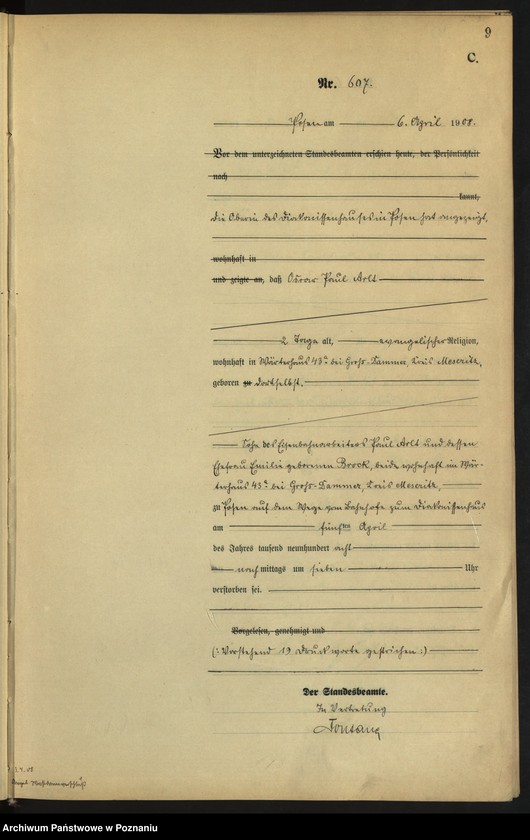 9
C.
Nr. 607.
Posen am 6. April 1908.
Vor dem unterzeichneten Standesbeamten erschien heute, der Persönlichkeit
nach
kannt,
die Oberin des Diakonissenhauses in Posen hat angezeigt,
wohnhaft in
und zeigte an, daß Oscar Paul Arlt
2 Tage alt, evangelischer Religion,
wohnhaft in Wärterhaus 43a bei Groß-Dammer, Kreis Meseritz,
geboren zu daselbst.
Sohn des Eisenbahnarbeiters Paul Arlt und dessen
Ehefrau Emilie geborenen Brock, beide wohnhaft im Wär-
terhaus 43a bei Groß-Dammer, Kreis Meseritz,
zu Posen auf dem Wege vom Bahnhofe zum Diakonissenhaus
am fünften April
des Jahres tausend neunhundert acht
nachmittags um sieben Uhr
verstorben sei.
Vorgelesen, genehmigt und
(: Vorstehend 19 Druckworte gestrichen :)
Der Standesbeamte.
In Vertretung
Archiwum Państwowe w Poznaniu